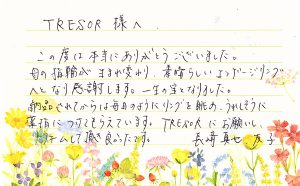 TRESOR 様へ
この度は本当にありがとうございました。
母の指輪が生まれ変わり、素晴らしいエンゲージリング
へとなり感謝します。一生の宝となりました。
納品されてからは毎日のようにリングを眺め、うれしそうに
薬指につけてもらえています。TRESORにお願いし、
リフォームして頂き良かったです。
長崎 真也 友子